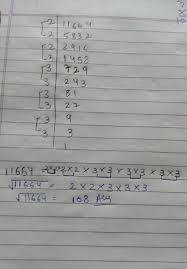 2 | 11664
2 | 5832
2 | 2916
2 | 1458
3 | 729
3 | 243
3 | 81
3 | 27
3 | 9
3 | 3
1
11664 = 2×2×2×2×3×3×3×3×3×3
√11664 = 2×2×3×3×3
√11664 = 108 Ans